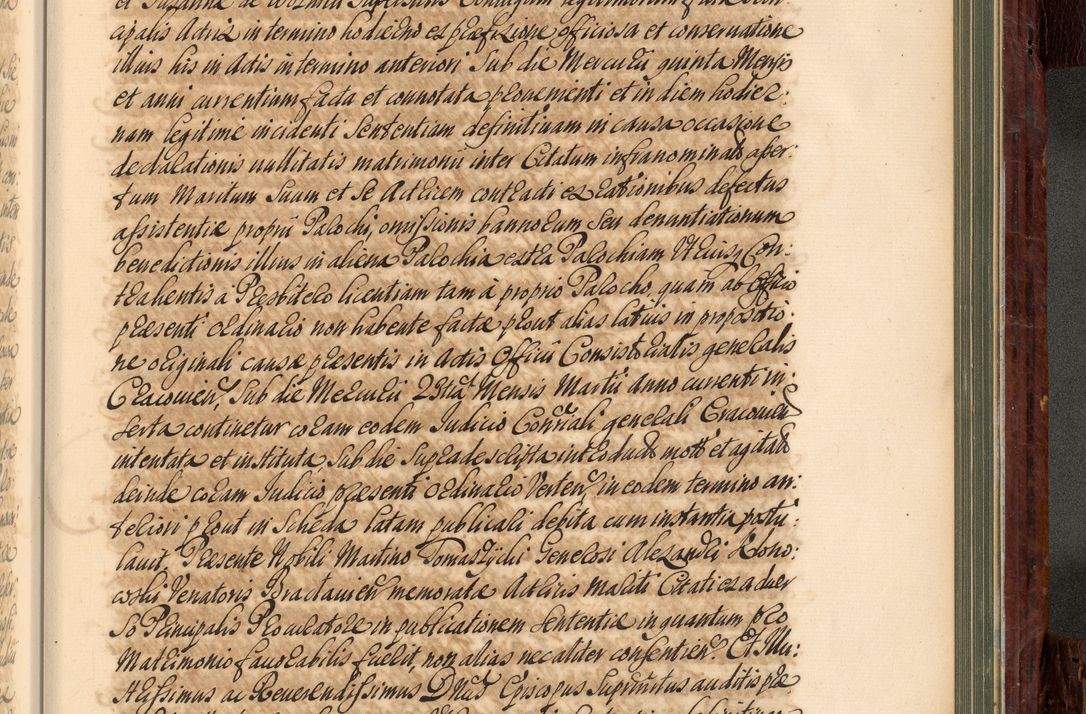 apalis Actrix in termino hodierno ex praefixione officiosa et conservatione
illius his in Actis in termino anteriori Sub die Mercurii quinta Mensis
et anni currentium facta et connotata provenienti et in diem hodier:
nam legitime incidenti Sententiam definitivam in causa occasione
declarationis nullitatis matrimonii inter Citatum infranominatum asser:
tum Maritum Suum et Se Actricem contracti ex rationibus defectus
assistentiae proprii Parochi, omissionis bannorum Seu denuntiationum
benedictionis illius in aliena Parochia extra Parochiam utriusq Con:
trahentis à Presbitero licentiam tam à proprio Parocho, quam ab Offcio
praesenti ordinario non habente factae prout alias latius in propositio:
ne originali causae praesentis in Actis Officii Consistorialis generalis
Cracovien, Sub die Mercurii 23tia Mensis Martii anno currenti in:
serta continetur coram eodem Judicio Consriali generali Cracovien
intentata et instituta, Sub die Supradescripta introduct mott et agitat
deinde coram Judicio praesenti Ordinario Verten, in eodem termino an:
teriori prout in Scheda latam publicari debita cum instantia postu:
lavit, Praesente Nobili Martino Tomaszycki Generosi Alexandri Kono:
coski Venatoris Braclavien memoratae Actricis Mariti Citati ex adver
So Principalis Procuratore in publicationem Sententiae in quantum pro
Matrimonio favorabilis fuerit, non alias nec aliter consentien Et Illu:
strissimus ac Reverendissimus Dnus Episcopus Suprinctus auditis prae